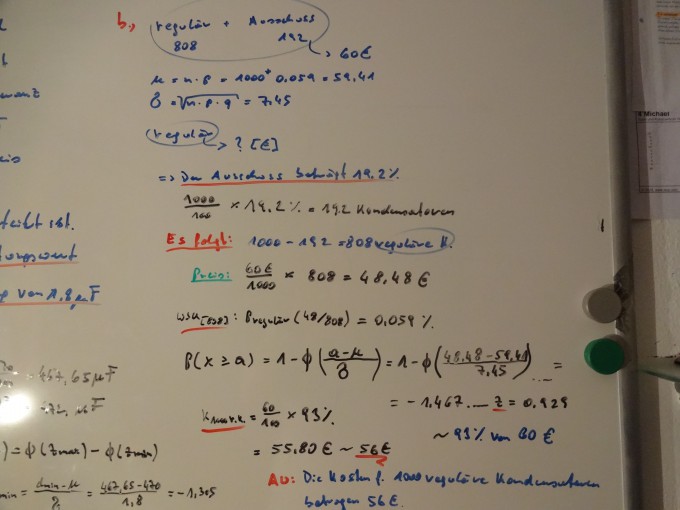 b., regulär + Ausschuss
808 192 → 60€
μ = n·p = 1000*0.059 = 59,41
δ = √n·p·q = 7,45
regulär → ? [€]
=> Der Ausschuss beträgt 19.2%
1000/100 × 19,2% = 192 Kondensatoren
Es folgt: 1000 - 192 = 808 reguläre K.
Preis: 60€/1000 × 808 = 48,48 €
WSK[808]: Pregulär (48/808) = 0,059 %.
P(X ≥ a) = 1 - ϕ(a-μ/δ) = 1 - ϕ(48,48-59,41/7,45) .... =
= -1,467.... z = 0,929
~ 93% von 60 €
= 60/100 × 93%
= 55,80 € ~ 56€
AW: Die Kosten f. 1000 reguläre Kondensatoren
betragen 56€.
wanz
ist.
tungswert
von 1,8 μF
457,65 μF
472, μF
) = ϕ(zmax) - ϕ(zmin)
min = dmin-μ/δ = 467,65-470/1,8 = -1,305
Michael